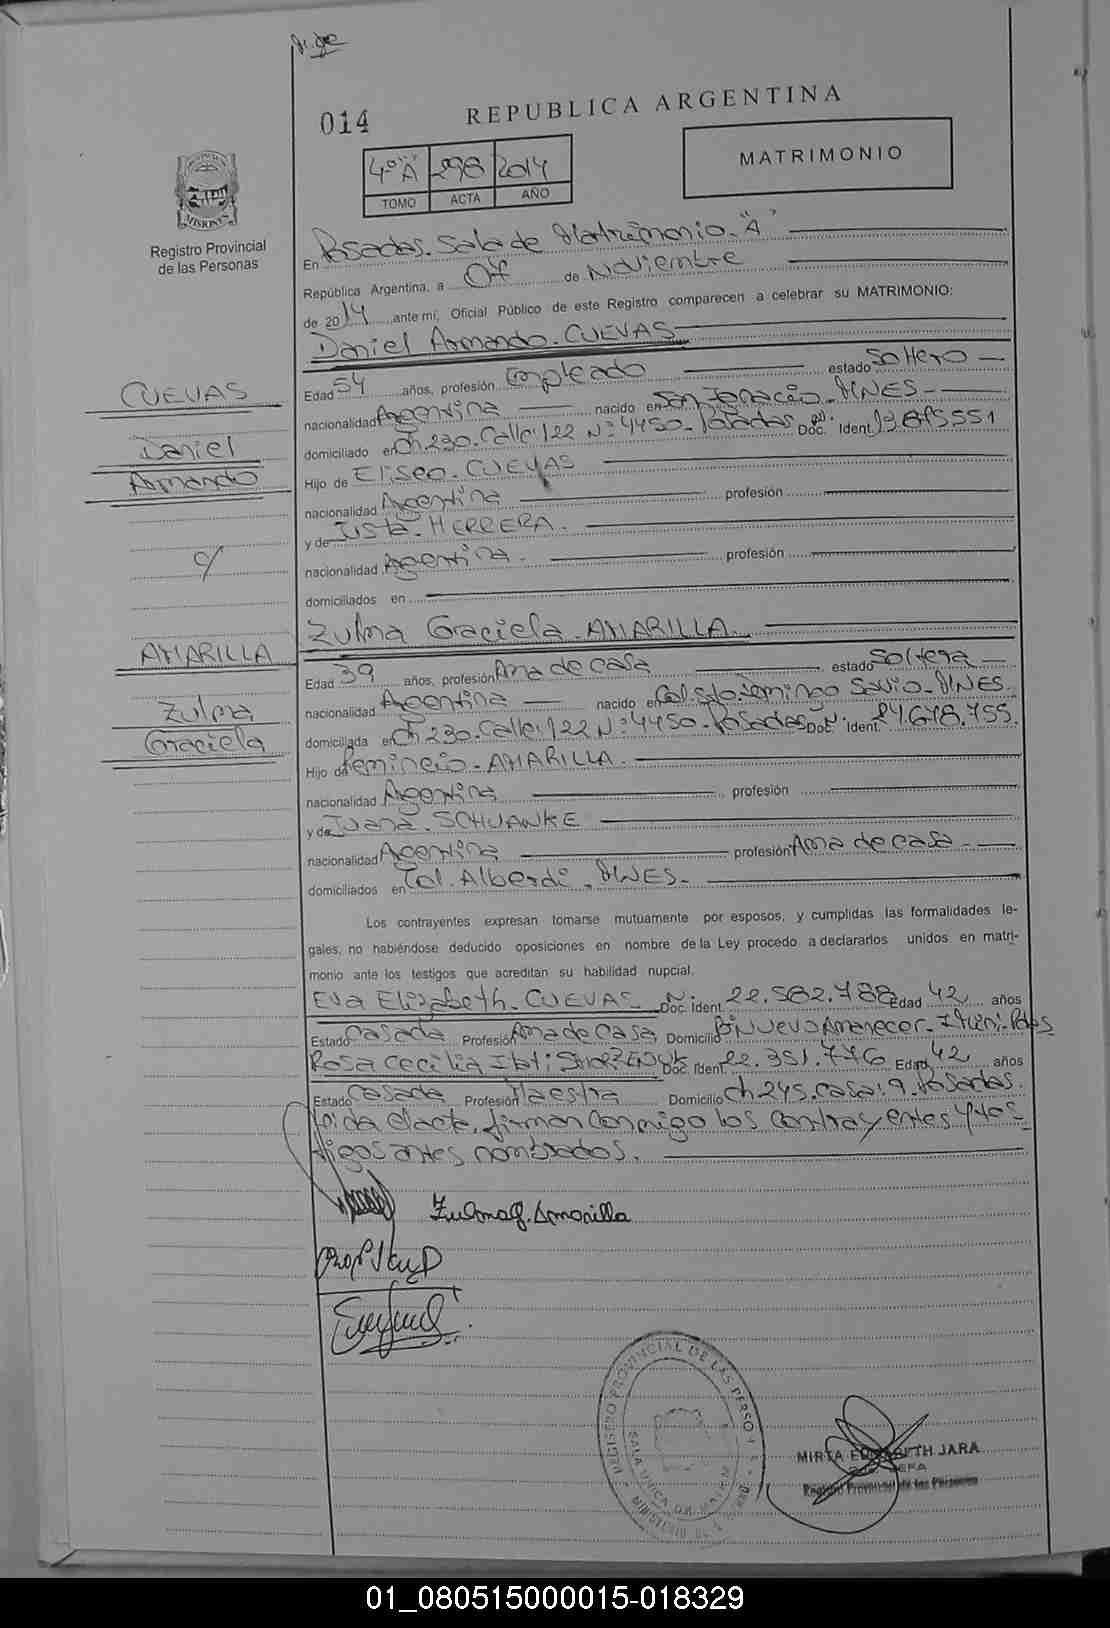 014
REPUBLICA ARGENTINA
MATRIMONIO
4º"A" 298 2014
TOMO ACTA AÑO
MISIONES
Registro Provincial
de las Personas
En Posadas. Sala de Matrimonio. "A"
República Argentina, a 07 de Noviembre
de 2014 ante mí, Oficial Público de este Registro comparecen a celebrar su MATRIMONIO:
Daniel Armando. CUEVAS
CUEVAS
Daniel
Armando
c/
Edad 54 años, profesión Empleado estado Soltero
nacionalidad Argentina nacido en San Ignacio. MNES
domiciliado en Ch 230. Calle 122 Nº 4450. Posadas Doc. Ident.
Hijo de Eliseo. CUEVAS
nacionalidad Argentina profesión
y de Justa. HERRERA.
nacionalidad Argentina. profesión
domiciliados en
Zulma Graciela. AMARILLA
AMARILLA
Zulma
Graciela
Edad 39 años, profesión Ama de casa estado Soltera
nacionalidad Argentina nacido en Domingo Savio. MNES
domiciliada en Ch 230. Calle 122 Nº 4450. Posadas Doc. Ident. 24.678.755.
Hijo de AMARILLA.
nacionalidad Argentina profesión
y de Juana. SCHUANKE
nacionalidad Argentina profesión Ama de casa
domiciliados en Col. Alberdi. MNES.
Los contrayentes expresan tomarse mutuamente por esposos, y cumplidas las formalidades le-
gales, no habiéndose deducido oposiciones en nombre de la Ley procedo a declararlos unidos en matri-
monio ante los testigos que acreditan su habilidad nupcial.
Eva Elizabeth. CUEVAS Doc. Ident. 22.582.788 Edad 42 años
Estado Casada Profesión Ama de Casa Domicilio Bº Nuevo Amanecer
Rosa Cecilia Doc. Ident. 22.351.776 Edad 42 años
Estado Casada Profesión Maestra Domicilio Ch 245. Casa: 9. Posadas.
Leída el acta, firman conmigo los contrayentes y tes-
tigos antes nombrados.
Zulma G. Amarilla
REGISTRO PROVINCIAL DE LAS PERSONAS
MIRTA ELIZABETH JARA
Registro Provincial de las Personas
01_080515000015-018329